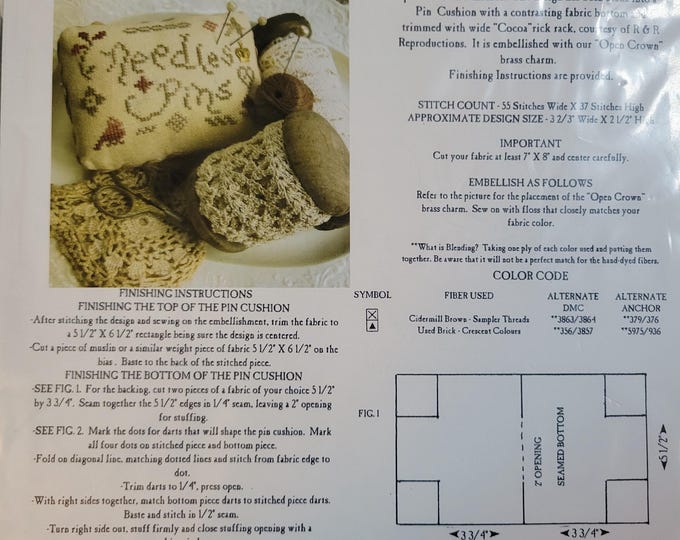 Needles
Pins
Pin Cushion with a contrasting fabric bottom
trimmed with wide "Cocoa" rick rack, courtesy of R & R
Reproductions. It is embellished with our "Open Crown"
brass charm.
Finishing Instructions are provided.
STITCH COUNT - 55 Stitches Wide X 37 Stitches High
APPROXIMATE DESIGN SIZE - 3 2/3" Wide X 2 1/2" High
IMPORTANT
Cut your fabric at least 7" X 8" and center carefully.
EMBELLISH AS FOLLOWS
Refer to the picture for the placement of the "Open Crown"
brass charm. Sew on with floss that closely matches your
fabric color.
**What is Blending? Taking one ply of each color used and putting them
together. Be aware that it will not be a perfect match for the hand-dyed fibers.
COLOR CODE
SYMBOL FIBER USED ALTERNATE DMC ALTERNATE ANCHOR
Cidermill Brown - Sampler Threads **3863/3864 **379/376
Used Brick - Crescent Colours **356/3857 **5975/936
FINISHING INSTRUCTIONS
FINISHING THE TOP OF THE PIN CUSHION
-After stitching the design and sewing on the embellishment, trim the fabric to
a 5 1/2" X 6 1/2" rectangle being sure the design is centered.
-Cut a piece of muslin or a similar weight piece of fabric 5 1/2" X 6 1/2" on the
bias. Baste to the back of the stitched piece.
FINISHING THE BOTTOM OF THE PIN CUSHION
-SEE FIG. 1. For the backing, cut two pieces of fabric of your choice 5 1/2"
by 3 3/4". Seam together the 5 1/2" edges in 1/4" seam, leaving a 2" opening
for stuffing.
-SEE FIG. 2. Mark the dots for darts that will shape the pin cushion. Mark
all four dots on stitched piece and bottom piece.
-Fold on diagonal line, matching dotted lines and stitch from fabric edge to
dot.
-Trim darts to 1/4", press open.
-With right sides together, match bottom piece darts to stitched piece darts.
Baste and stitch in 1/2" seam.
-Turn right side out, stuff firmly and close stuffing opening with a
FIG. 1
2" OPENING
SEAMED BOTTOM
5 1/2"
3 3/4"
3 3/4"